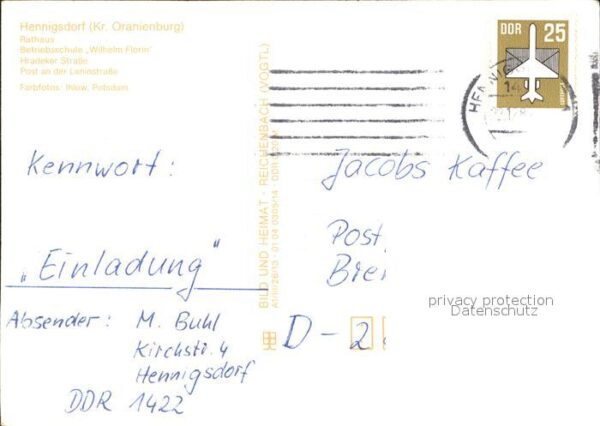 Hennigsdorf (Kr. Oranienburg)
Rathaus
Betriebsschule „Wilhelm Florin"
Hradeker Straße
Post an der Leninstraße
Farbfotos: Ihlow, Potsdam
DDR 25
HENNIG
14
BILD UND HEIMAT · REICHENBACH (VOGTL)
Kennwort:
„Einladung"
Absender: M. Buhl
Kirchstr. 4
Hennigsdorf
DDR 1422
Jacobs Kaffee
Post
Bre
D-2
privacy protection
Datenschutz